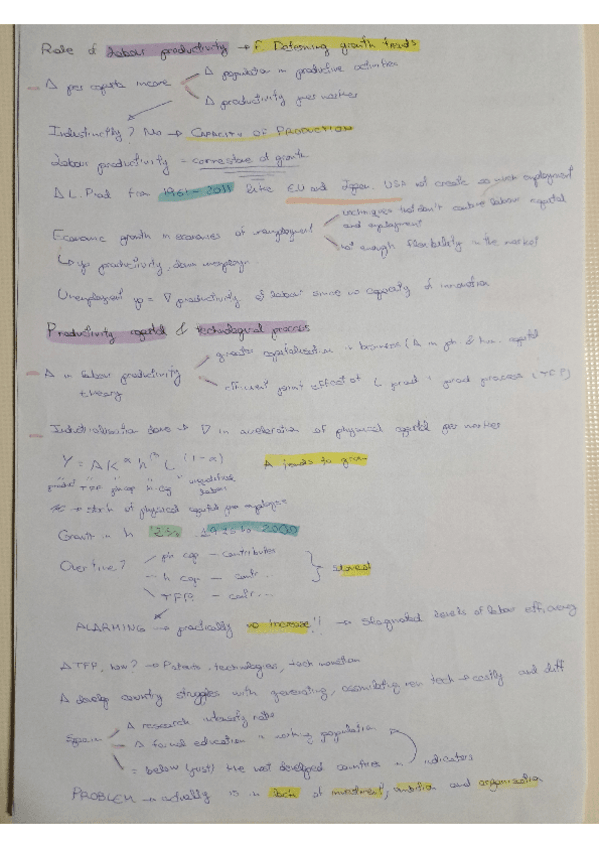 Role of labour productivity → f. Determining growth trends
Δ per capita income
Δ population in productive activities
Δ productivity per worker
Industriality? No → CAPACITY OF PRODUCTION
Labour productivity = cornerstone of growth
Δ L. Prod from 1961-2011 like EU and Japan. USA not create so much employment
Economic growth in economies of unemployment
techniques that don't combine labour capital and employment
not enough flexibility in the market
↳ up productivity, down
Unemployment up = ∇ productivity of labour since no capacity of innovation
Productivity capital & technological process
Δ in labour productivity theory
greater capitalisation in business (Δ in ph & hum. capital
efficient joint effect of L prod prod process (TFP)
Industrialisation does → ∇ in acceleration of physical capital per worker
Y = A K^α h^β L^(1-α) A tends to grow
TFP ph cap h cap labour
→ stock of physical capital per employee
Growth in h 1925 to 2000
Over time?
ph cap - contributes
h cap - contr...
TFP - contr...
slowest
ALARMING → practically no increase!! → Stagnated levels of labour efficiency
Δ TFP, how? → Patents, technologies, tech
A develop country struggles with generating, assimilating new tech → costly and diff
Spain
Δ research intensity rate
Δ formal education in working population
= below (just) the most developed countries in indicators
PROBLEM → actually is in lack of investment, ambition and organisation